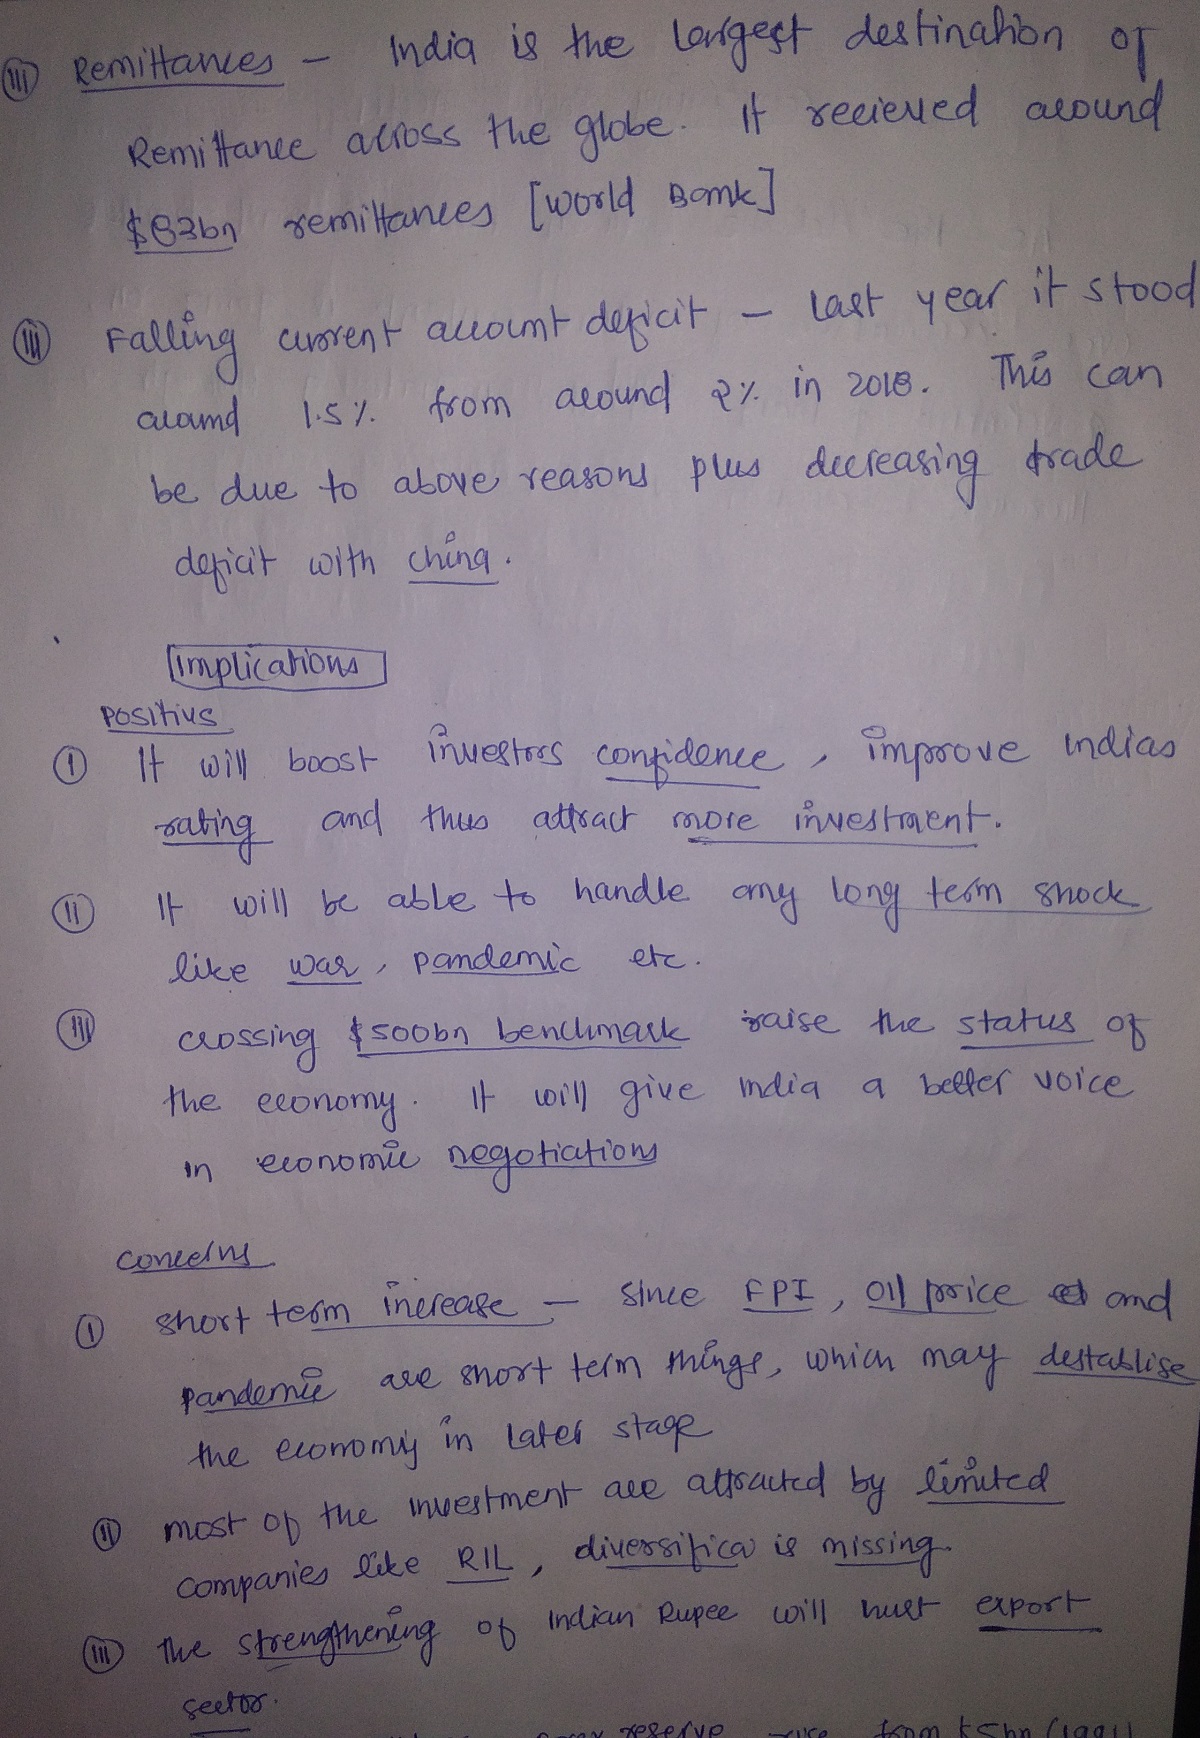 (iii) Remittances - India is the largest destination of
Remittance across the globe. It recieved around
$83bn remittances [World Bank]
(iii) Falling current account deficit - last year it stood
around 1.5% from around 2% in 2018. This can
be due to above reasons plus decreasing trade
deficit with china.
Implications
Positives
(i) It will boost investors confidence, improve Indias
rating and thus attract more investment.
(ii) It will be able to handle any long term shock
like war, pandemic etc.
(iii) crossing $500bn benchmark raise the status of
the economy. It will give India a better voice
in economic negotiations
Concerns
(i) short term increase - since FPI, oil price and
pandemic are short term things, which may destablise
the economy in later stage
(ii) most of the investment are attracted by limited
companies like RIL, diversifica is missing.
(iii) the strengthening of Indian Rupee will hurt export
sector.
reserve rise from $5bn (1991)